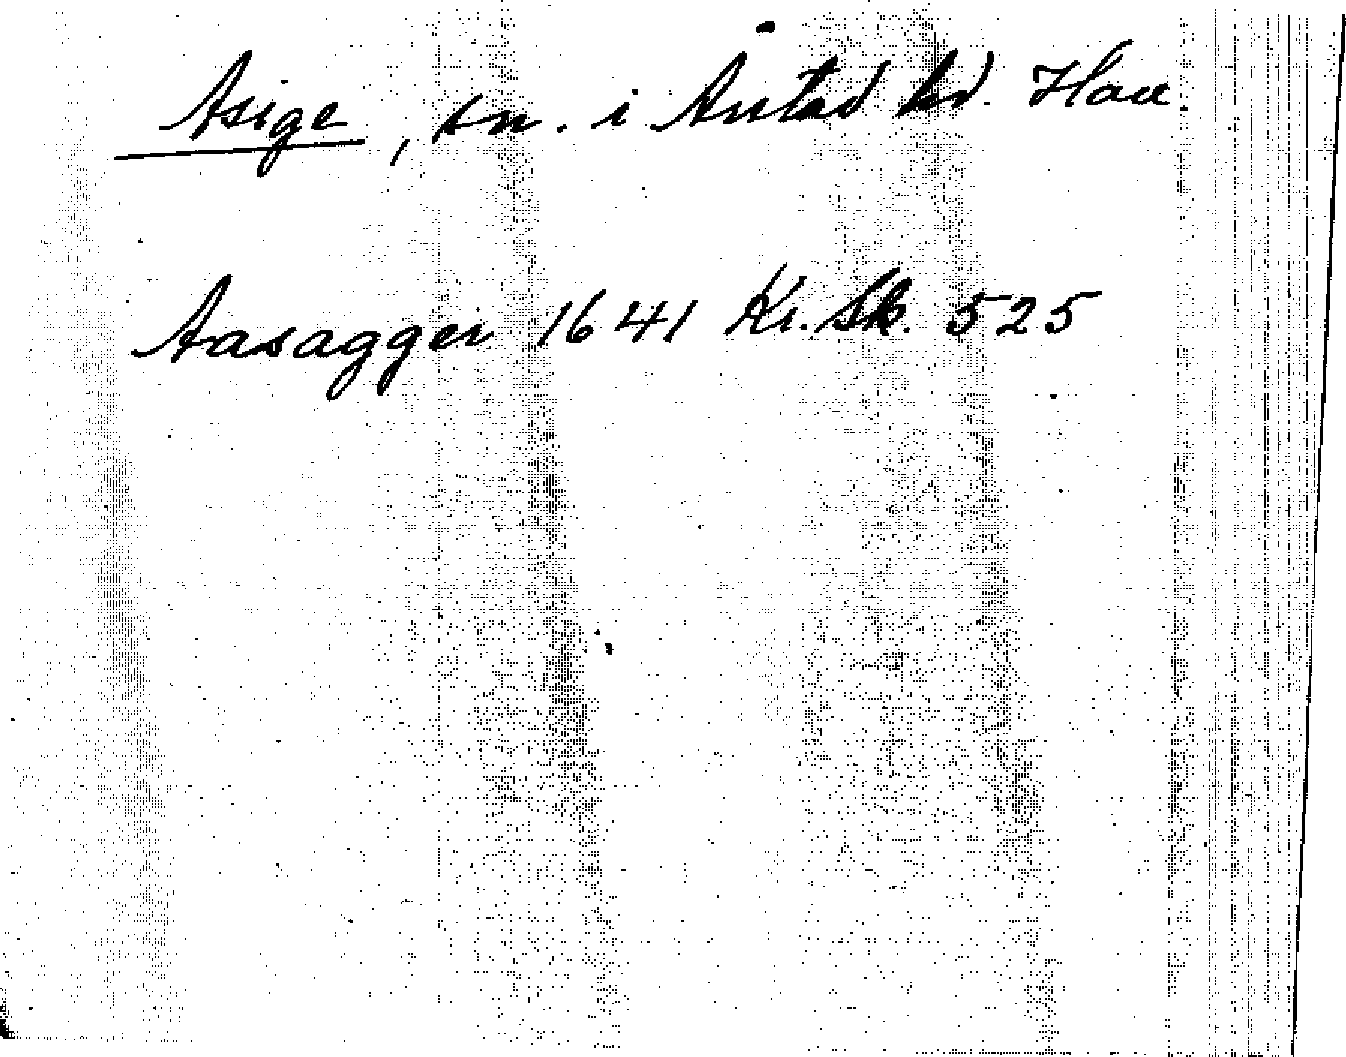 Asige, sn. i Årstad hd. Hall.
Aasagger 1641 Kr. Sk. 525